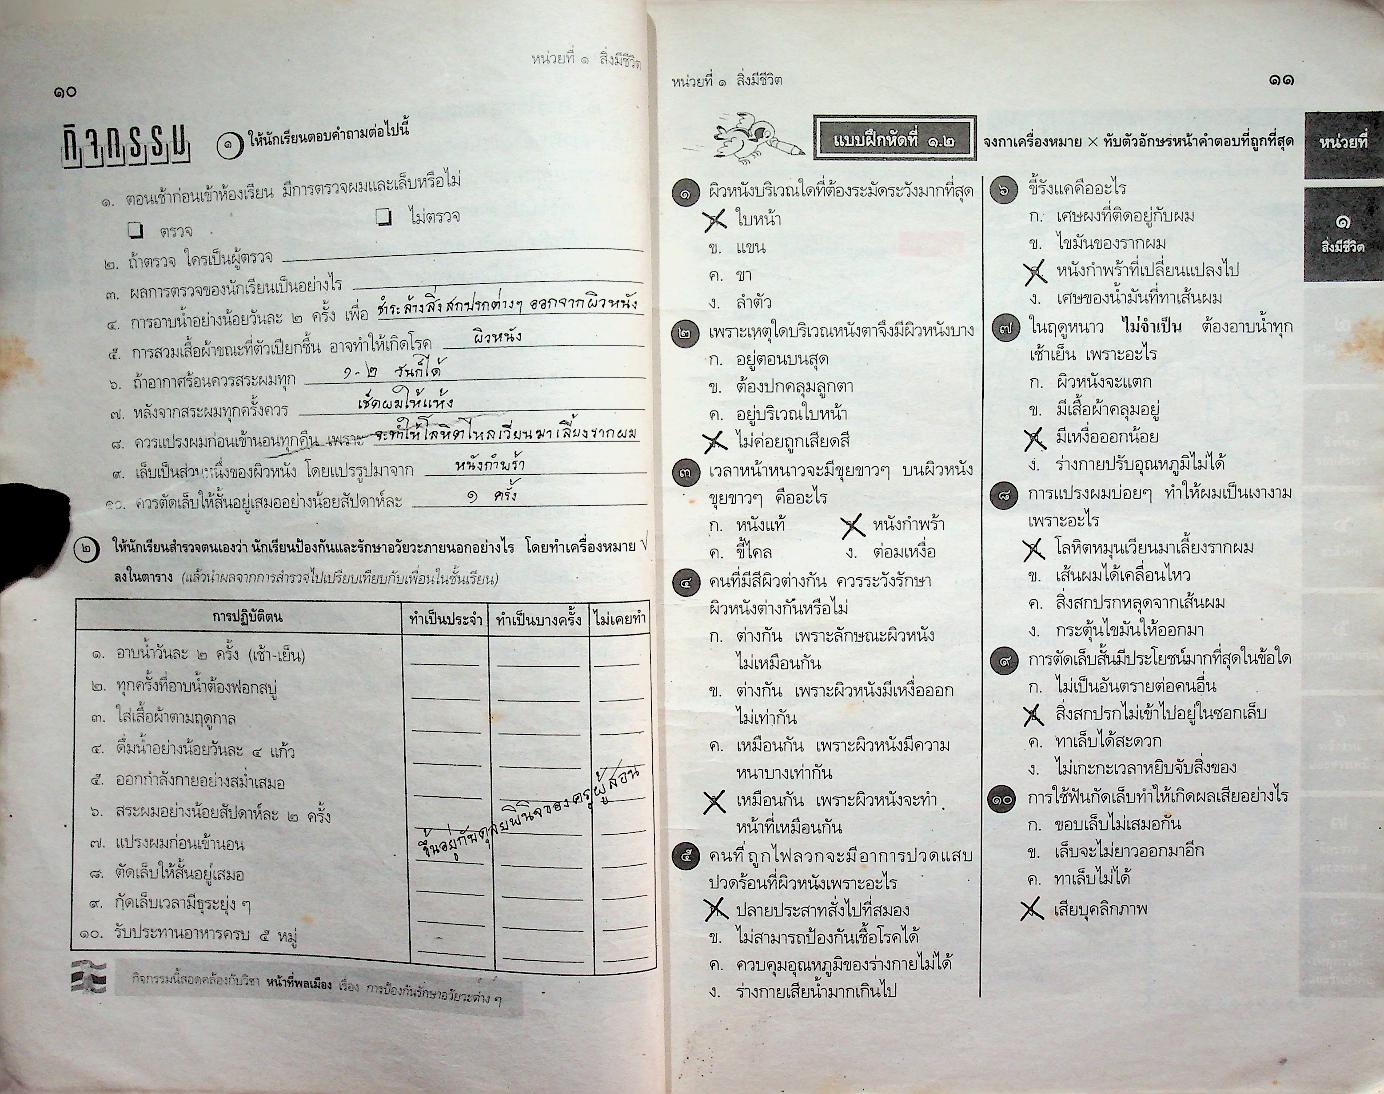 หน่วยที่ ๑ สิ่งมีชีวิต
๑๐
กิจกรรม
๑ ให้นักเรียนตอบคำถามต่อไปนี้
๑. ตอนเช้าก่อนเข้าห้องเรียน มีการตรวจผมและเล็บหรือไม่
❏ ตรวจ ❏ ไม่ตรวจ
๒. ถ้าตรวจ ใครเป็นผู้ตรวจ
๓. ผลการตรวจของนักเรียนเป็นอย่างไร
๔. การอาบน้ำอย่างน้อยวันละ ๒ ครั้ง เพื่อ ชำระล้างสิ่งสกปรกต่างๆ ออกจากผิวหนัง
๕. การสวมเสื้อผ้าขณะที่ตัวเปียกชื้น อาจทำให้เกิดโรค ผิวหนัง
๖. ถ้าอากาศร้อนควรสระผมทุก ๑-๒ วันก็ได้
๗. หลังจากสระผมทุกครั้งควร เช็ดผมให้แห้ง
๘. ควรแปรงผมก่อนเข้านอนทุกคืน เพราะ จะทำให้โลหิตไหลเวียนมาเลี้ยงรากผม
๙. เล็บเป็นส่วนหนึ่งของผิวหนัง โดยแปรรูปมาจาก หนังกำพร้า
๑๐. ควรตัดเล็บให้สั้นอยู่เสมออย่างน้อยสัปดาห์ละ ๑ ครั้ง
๒ ให้นักเรียนสำรวจตนเองว่า นักเรียนป้องกันและรักษาอวัยวะภายนอกอย่างไร โดยทำเครื่องหมาย √
ลงในตาราง (แล้วนำผลจากการสำรวจไปเปรียบเทียบกับเพื่อนในชั้นเรียน)
การปฏิบัติตน ทำเป็นประจำ ทำเป็นบางครั้ง ไม่เคยทำ
๑. อาบน้ำวันละ ๒ ครั้ง (เช้า-เย็น)
๒. ทุกครั้งที่อาบน้ำต้องฟอกสบู่
๓. ใส่เสื้อผ้าตามฤดูกาล
๔. ดื่มน้ำอย่างน้อยวันละ ๔ แก้ว
๕. ออกกำลังกายอย่างสม่ำเสมอ
๖. สระผมอย่างน้อยสัปดาห์ละ ๒ ครั้ง
๗. แปรงผมก่อนเข้านอน
๘. ตัดเล็บให้สั้นอยู่เสมอ
๙. กัดเล็บเวลามีธุระยุ่ง ๆ
๑๐. รับประทานอาหารครบ ๕ หมู่
ขึ้นอยู่กับดุลยพินิจของครูผู้สอน
กิจกรรมนี้สอดคล้องกับวิชา หน้าที่พลเมือง เรื่อง การป้องกันรักษาอวัยวะต่าง ๆ
หน่วยที่ ๑ สิ่งมีชีวิต
๑๑
แบบฝึกหัดที่ ๑.๒ จงกาเครื่องหมาย × ทับตัวอักษรหน้าคำตอบที่ถูกที่สุด
๑ ผิวหนังบริเวณใดที่ต้องระมัดระวังมากที่สุด
ใบหน้า
ข. แขน
ค. ขา
ง. ลำตัว
๒ เพราะเหตุใดบริเวณหนังตาจึงมีผิวหนังบาง
ก. อยู่ตอนบนสุด
ข. ต้องปกคลุมลูกตา
ค. อยู่บริเวณใบหน้า
ไม่ค่อยถูกเสียดสี
๓ เวลาหน้าหนาวจะมีขุยขาวๆ บนผิวหนัง
ขุยขาวๆ คืออะไร
ก. หนังแท้ หนังกำพร้า
ค. ขี้ไคล ง. ต่อมเหงื่อ
๔ คนที่มีสีผิวต่างกัน ควรระวังรักษา
ผิวหนังต่างกันหรือไม่
ก. ต่างกัน เพราะลักษณะผิวหนัง
ไม่เหมือนกัน
ข. ต่างกัน เพราะผิวหนังมีเหงื่อออก
ไม่เท่ากัน
ค. เหมือนกัน เพราะผิวหนังมีความ
หนาบางเท่ากัน
เหมือนกัน เพราะผิวหนังจะทำ
หน้าที่เหมือนกัน
๕ คนที่ถูกไฟลวกจะมีอาการปวดแสบ
ปวดร้อนที่ผิวหนังเพราะอะไร
ปลายประสาทสั่งไปที่สมอง
ข. ไม่สามารถป้องกันเชื้อโรคได้
ค. ควบคุมอุณหภูมิของร่างกายไม่ได้
ง. ร่างกายเสียน้ำมากเกินไป
๖ ขี้รังแคคืออะไร
ก. เศษผงที่ติดอยู่กับผม
ข. ไขมันของรากผม
หนังกำพร้าที่เปลี่ยนแปลงไป
ง. เศษของน้ำมันที่ทาเส้นผม
๗ ในฤดูหนาว ไม่จำเป็น ต้องอาบน้ำทุก
เช้าเย็น เพราะอะไร
ก. ผิวหนังจะแตก
ข. มีเสื้อผ้าคลุมอยู่
มีเหงื่อออกน้อย
ง. ร่างกายปรับอุณหภูมิไม่ได้
๘ การแปรงผมบ่อยๆ ทำให้ผมเป็นเงางาม
เพราะอะไร
โลหิตหมุนเวียนมาเลี้ยงรากผม
ข. เส้นผมได้เคลื่อนไหว
ค. สิ่งสกปรกหลุดจากเส้นผม
ง. กระตุ้นไขมันให้ออกมา
๙ การตัดเล็บสั้นมีประโยชน์มากที่สุดในข้อใด
ก. ไม่เป็นอันตรายต่อคนอื่น
สิ่งสกปรกไม่เข้าไปอยู่ในซอกเล็บ
ค. ทาเล็บได้สะดวก
ง. ไม่เกะกะเวลาหยิบจับสิ่งของ
๑๐ การใช้ฟันกัดเล็บทำให้เกิดผลเสียอย่างไร
ก. ขอบเล็บไม่เสมอกัน
ข. เล็บจะไม่ยาวออกมาอีก
ค. ทาเล็บไม่ได้
เสียบุคลิกภาพ
หน่วยที่
๑
สิ่งมีชีวิต